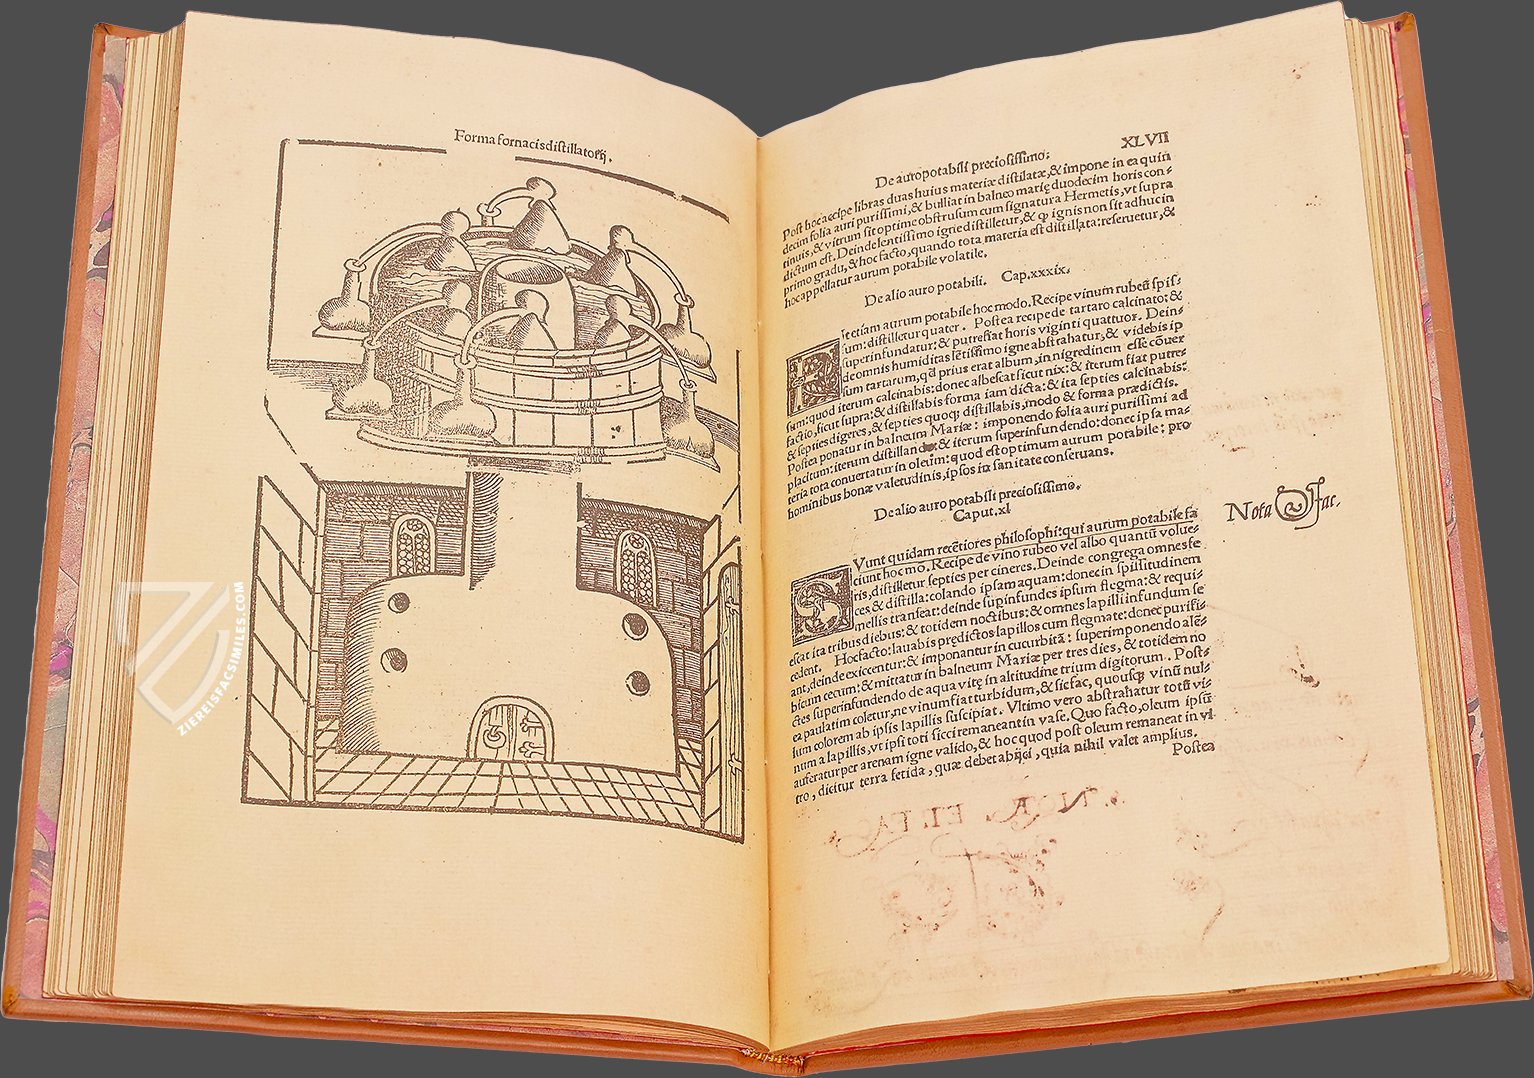 Forma fornacis distillatorij.
XLVII
De auro potabili preciosissimo:
Post hoc accipe libras duas huius materiæ distilatæ, & impone in ea quin
decim folia auri purissimi, & bulliat in balneo marię duodecim horis con-
tinuis, & vitrum sit optime obstrusum cum signatura Hermetis, vt supra
dictum est. Deinde lentissimo igne distilletur, & qꝫ ignis non sit adhuc in
primo gradu, & hoc facto, quando tota materia est distillata: reseruetur, &
hoc appellatur aurum potabile volatile.
De alio auro potabili. Cap. xxxix.
It etiam aurum potabile hoc modo. Recipe vinum rubeū sp is-
sum: distilletur quater. Postea recipe de tartaro calcinato: &
superinfundatur: & putrefiat horis viginti quattuor. Dein-
de omnis humiditas lētissimo igne abstrahatur, & videbis ip
sum tartarum, qđ prius erat album, in nigredinem esse cōuer
sum: quod iterum calcinabis: donec albescat sicut nix: & iterum fiat putre-
factio, sicut supra: & distillabis forma iam dicta: & ita septies calcinabis:
& septies digeres, & septies quoqꝫ distillabis, modo & forma prædictis.
Postea ponatur in balneum Mariæ: imponendo folia auri purissimi ad
placitum: iterum distillando: & iterum superinfundendo: donec ipsa ma-
teria tota conuertatur in oleum: quod est optimum aurum potabile: pro
hominibus bonæ valetudinis, ipsos in sanitate conseruans.
De alio auro potabili preciosissimo.
Caput. xl
Nota Fac.
SVnt quidam recētiores philosophi: qui aurum potabile fa
ciunt hoc mō. Recipe de vino rubeo vel albo quantū volue-
ris, distilletur septies per cineres. Deinde congrega omnes fe
ces & distilla: colando ipsam aquam: donec in spissitudinem
mellis transeat: deinde supinfundes ipsum flegma: & requi-
escat ita tribus diebus: & totidem noctibus: & omnes lapilli infundum se
cedent. Hoc facto: lauabis prędictos lapillos cum flegmate: donec purifi-
ant, deinde exiccentur: & imponantur in cucurbitā: superimponendo alē-
bicum cecum: & mittatur in balneum Mariæ per tres dies, & totidem no
ctes superfundendo de aqua vitę in altitudine trium digitorum. Post-
ea paulatim coletur, ne vinum fiat turbidum, & sic fac, quousqꝫ vinū nul-
lum colorem ab ipsis lapillis suscipiat. Vltimo vero abstrahatur totū vi-
num a lapillis, vt ipsi toti sicci remaneant in vase. Quo facto, oleum ipsū
auferatur per arenam igne valido, & hoc quod post oleum remaneat in vi
tro, dicitur terra fetida, quæ debet abijci, quia nihil valet amplius.
Postea
ZIEREISFACSIMILES.COM